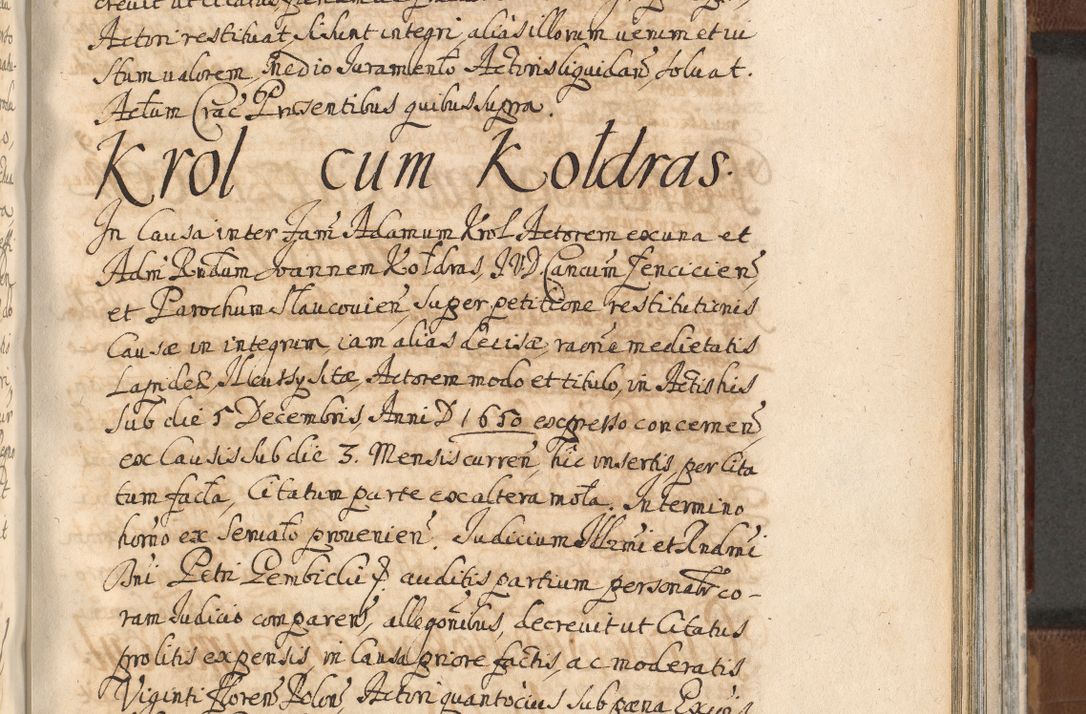 Actori restituat si sunt integri, alias illorum uerum et iu
stum ualorem, medio Iuramento Actoris liquidan soluat.
Actum Crac Praesentibus quibus supra.
Krol cum Kołdras.
In Causa inter Fam Adamum Krol Actorem ex una et
Adm Rndum Joannem Kołdras, JVD Cancum Lencicien
et Parochum Slaucouien, super petitione restitutionis
Causæ in integrum iam alias decisæ, raone medietatis
Lapideæ, sitæ, Actorem modo et titulo, in Actis his
sub die 5 Decembris, Anni D 1650 expresso concernen,
ex Causis sub die 3. Mensis curren, hic insertis, per Cita
tum facta, Citatum parte ex altera mota. In termino
horno ex Seruato prouenien. Iudicium Illrmi et Rndmi
Dni Petri Gembicki &. auditis partium personalr co-
ram Iudicio comparen, allegonibus, decreuit ut Citatus
pro litis expensis, in Causa priore factis, ac moderatis
Viginti floren Polon, Actori quantocius sub pæna